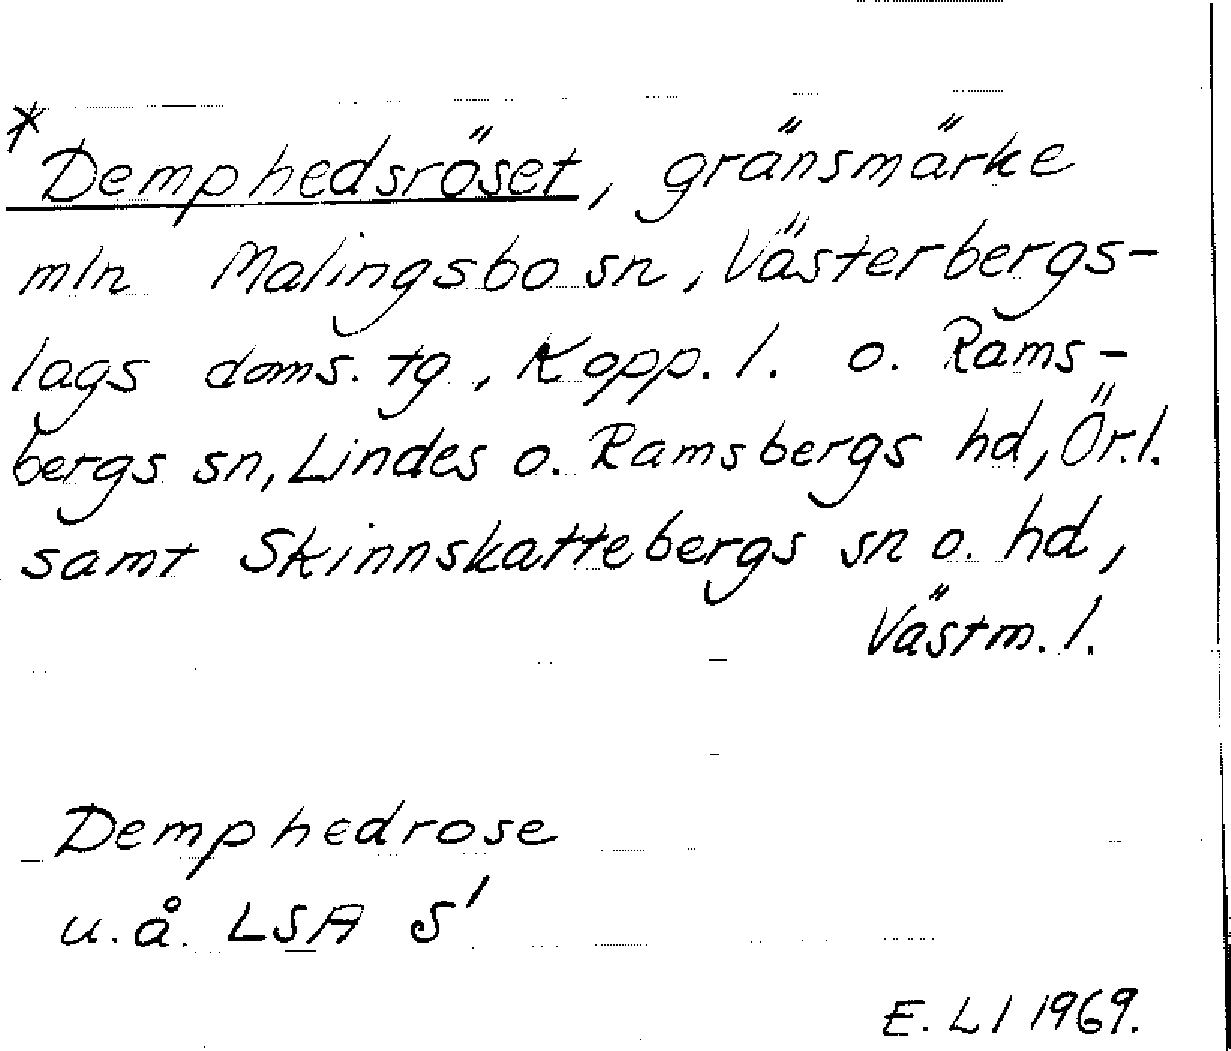 *Demphedsröset, gränsmärke
mln Malingsbo sn, Västerbergs-
lags doms. tg, Kopp. l. o. Rams-
bergs sn, Lindes o. Ramsbergs hd, Ör. l.
samt Skinnskattebergs sn o. hd,
Västm. l.
Demphedrose
u. å. LSA S'
E. Ll 1969.